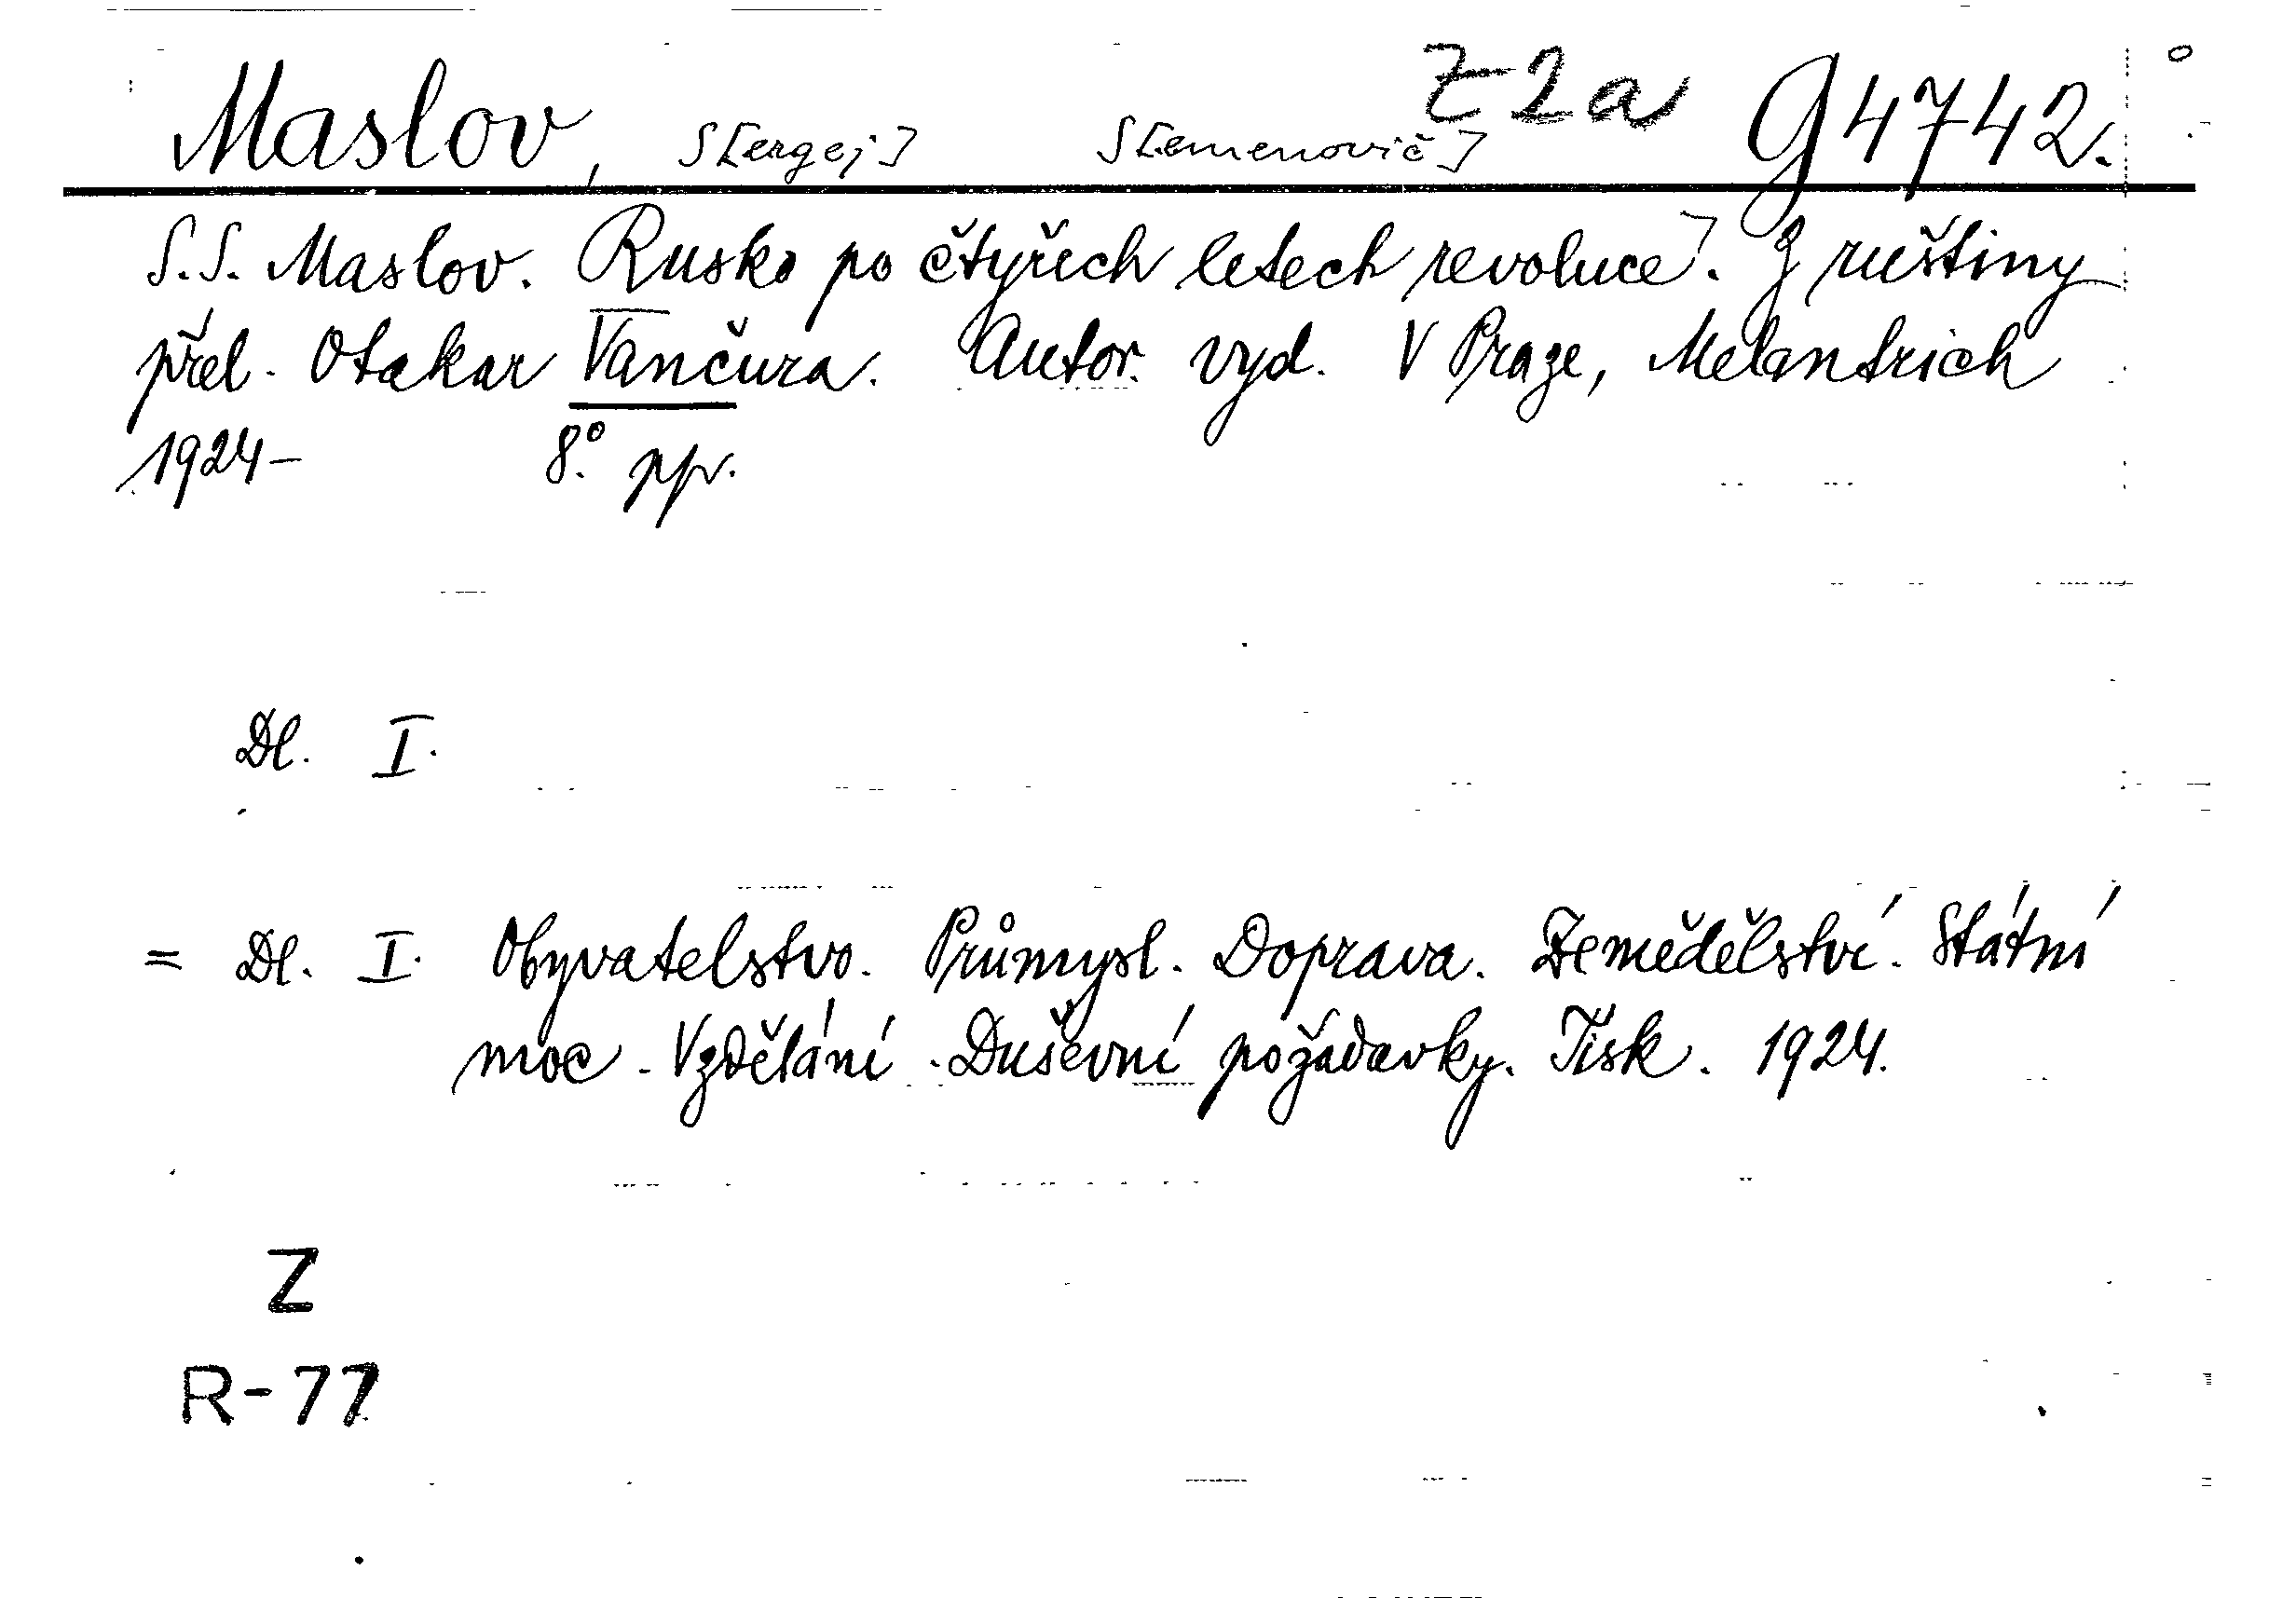 Maslov, S[ergej] S[emenovič] Z 2a G 4742.
S.S. Maslov. Rusko po čtyřech letech revoluce]. Z ruštiny
přel. Otakar Vančura. Autor. vyd. V Praze, Melantrich
1924- 8° pp.
Dl. I.
= Dl. I. Obyvatelstvo. Průmysl. Doprava. Zemědělství. Státní
moc. Vzdělání. Duševní požadavky. Tisk. 1924.
Z
R-77